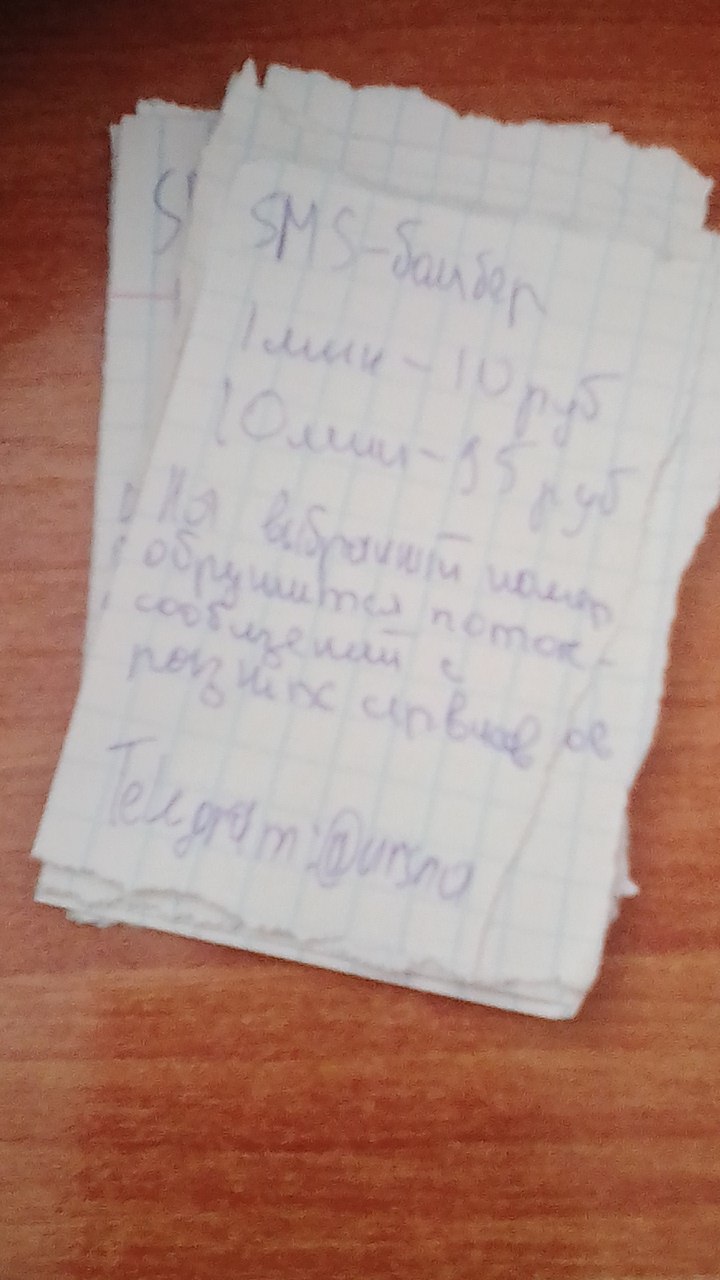 SMS-бомбер
1 мин - 10 руб
10 мин - 95 руб
На выбранный номер
обрушится поток
сообщений с
разных сервисов
Telegram:
S